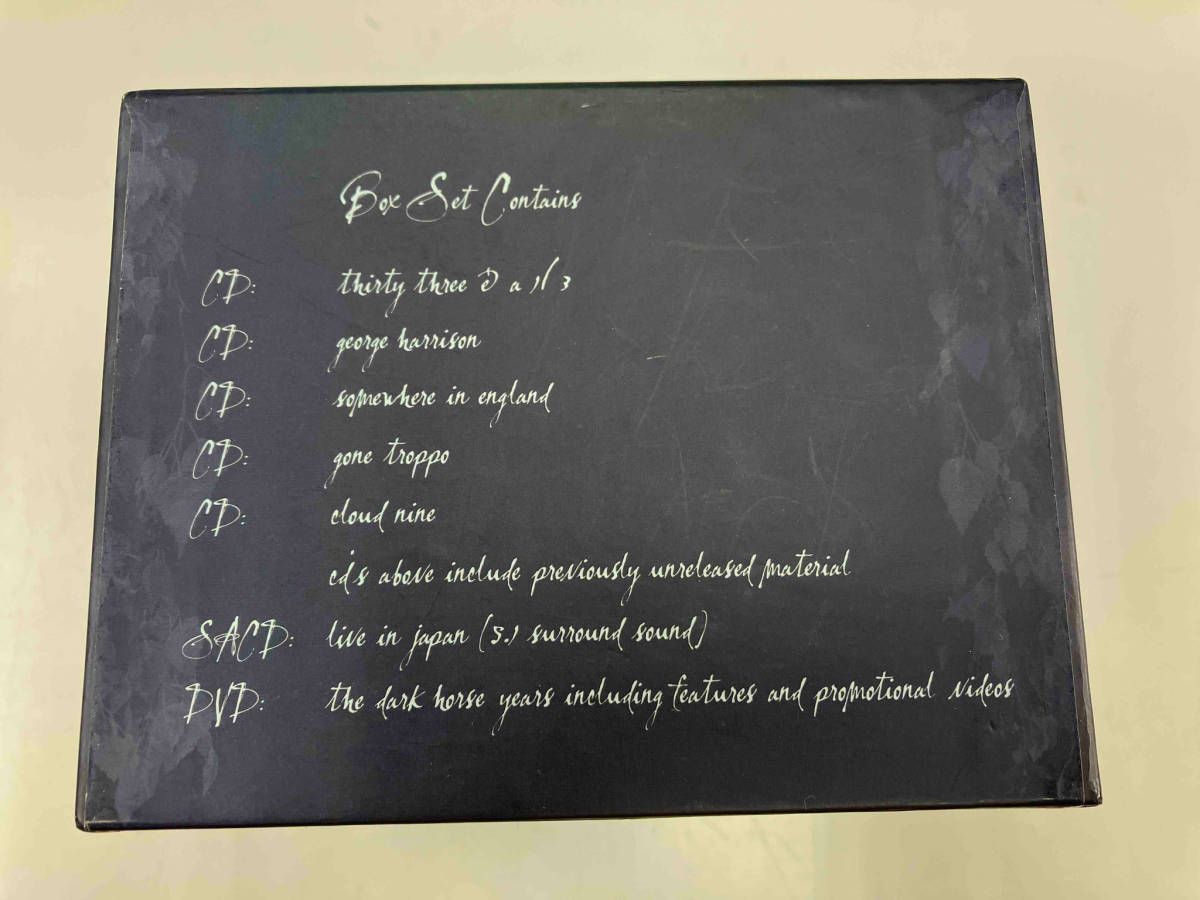 Box Set Contains
CD: thirty three & a 1/3
CD: george harrison
CD: somewhere in england
CD: gone troppo
CD: cloud nine
cd's above include previously unreleased material
SACD: live in japan (5.1 surround sound)
DVD: the dark horse years including features and promotional videos